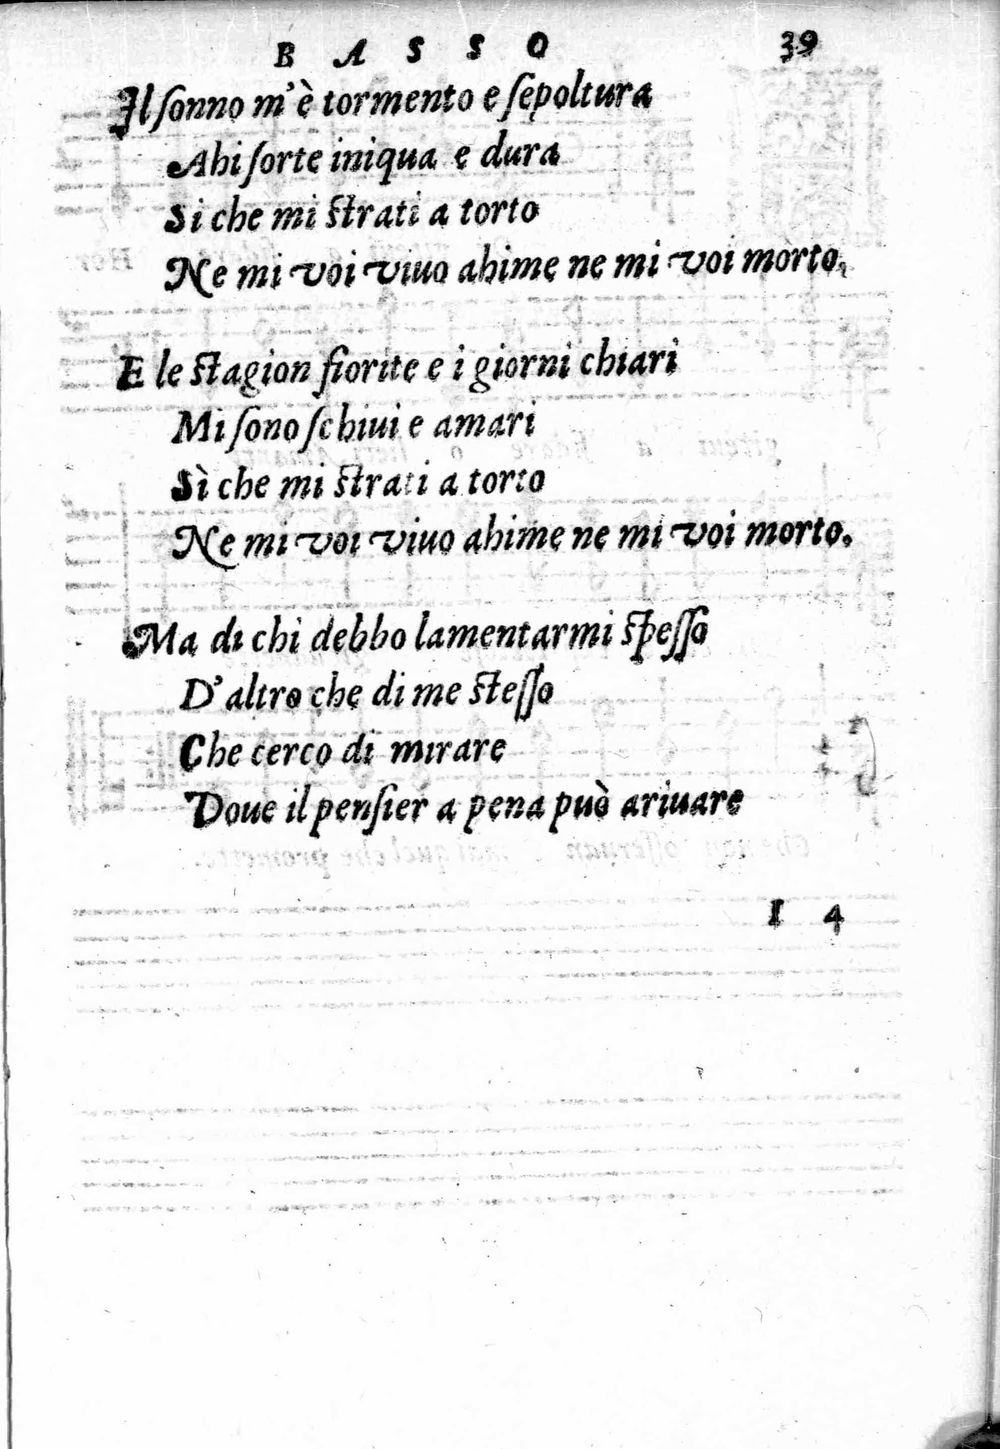 B A S S O 39
Il ſonno m'è tormento e ſepoltura
Ahi ſorte iniqua e dura
Si che mi ſtrati a torto
Ne mi voi viuo ahime ne mi voi morto.
E le ſtagion fiorite e i giorni chiari
Mi ſono ſchiui e amari
Sì che mi ſtrati a torto
Ne mi voi viuo ahime ne mi voi morto.
Ma di chi debbo lamentarmi ſpeſſo
D'altro che di me ſteſſo
Che cerco di mirare
Doue il penſier a pena può ariuare
I 4